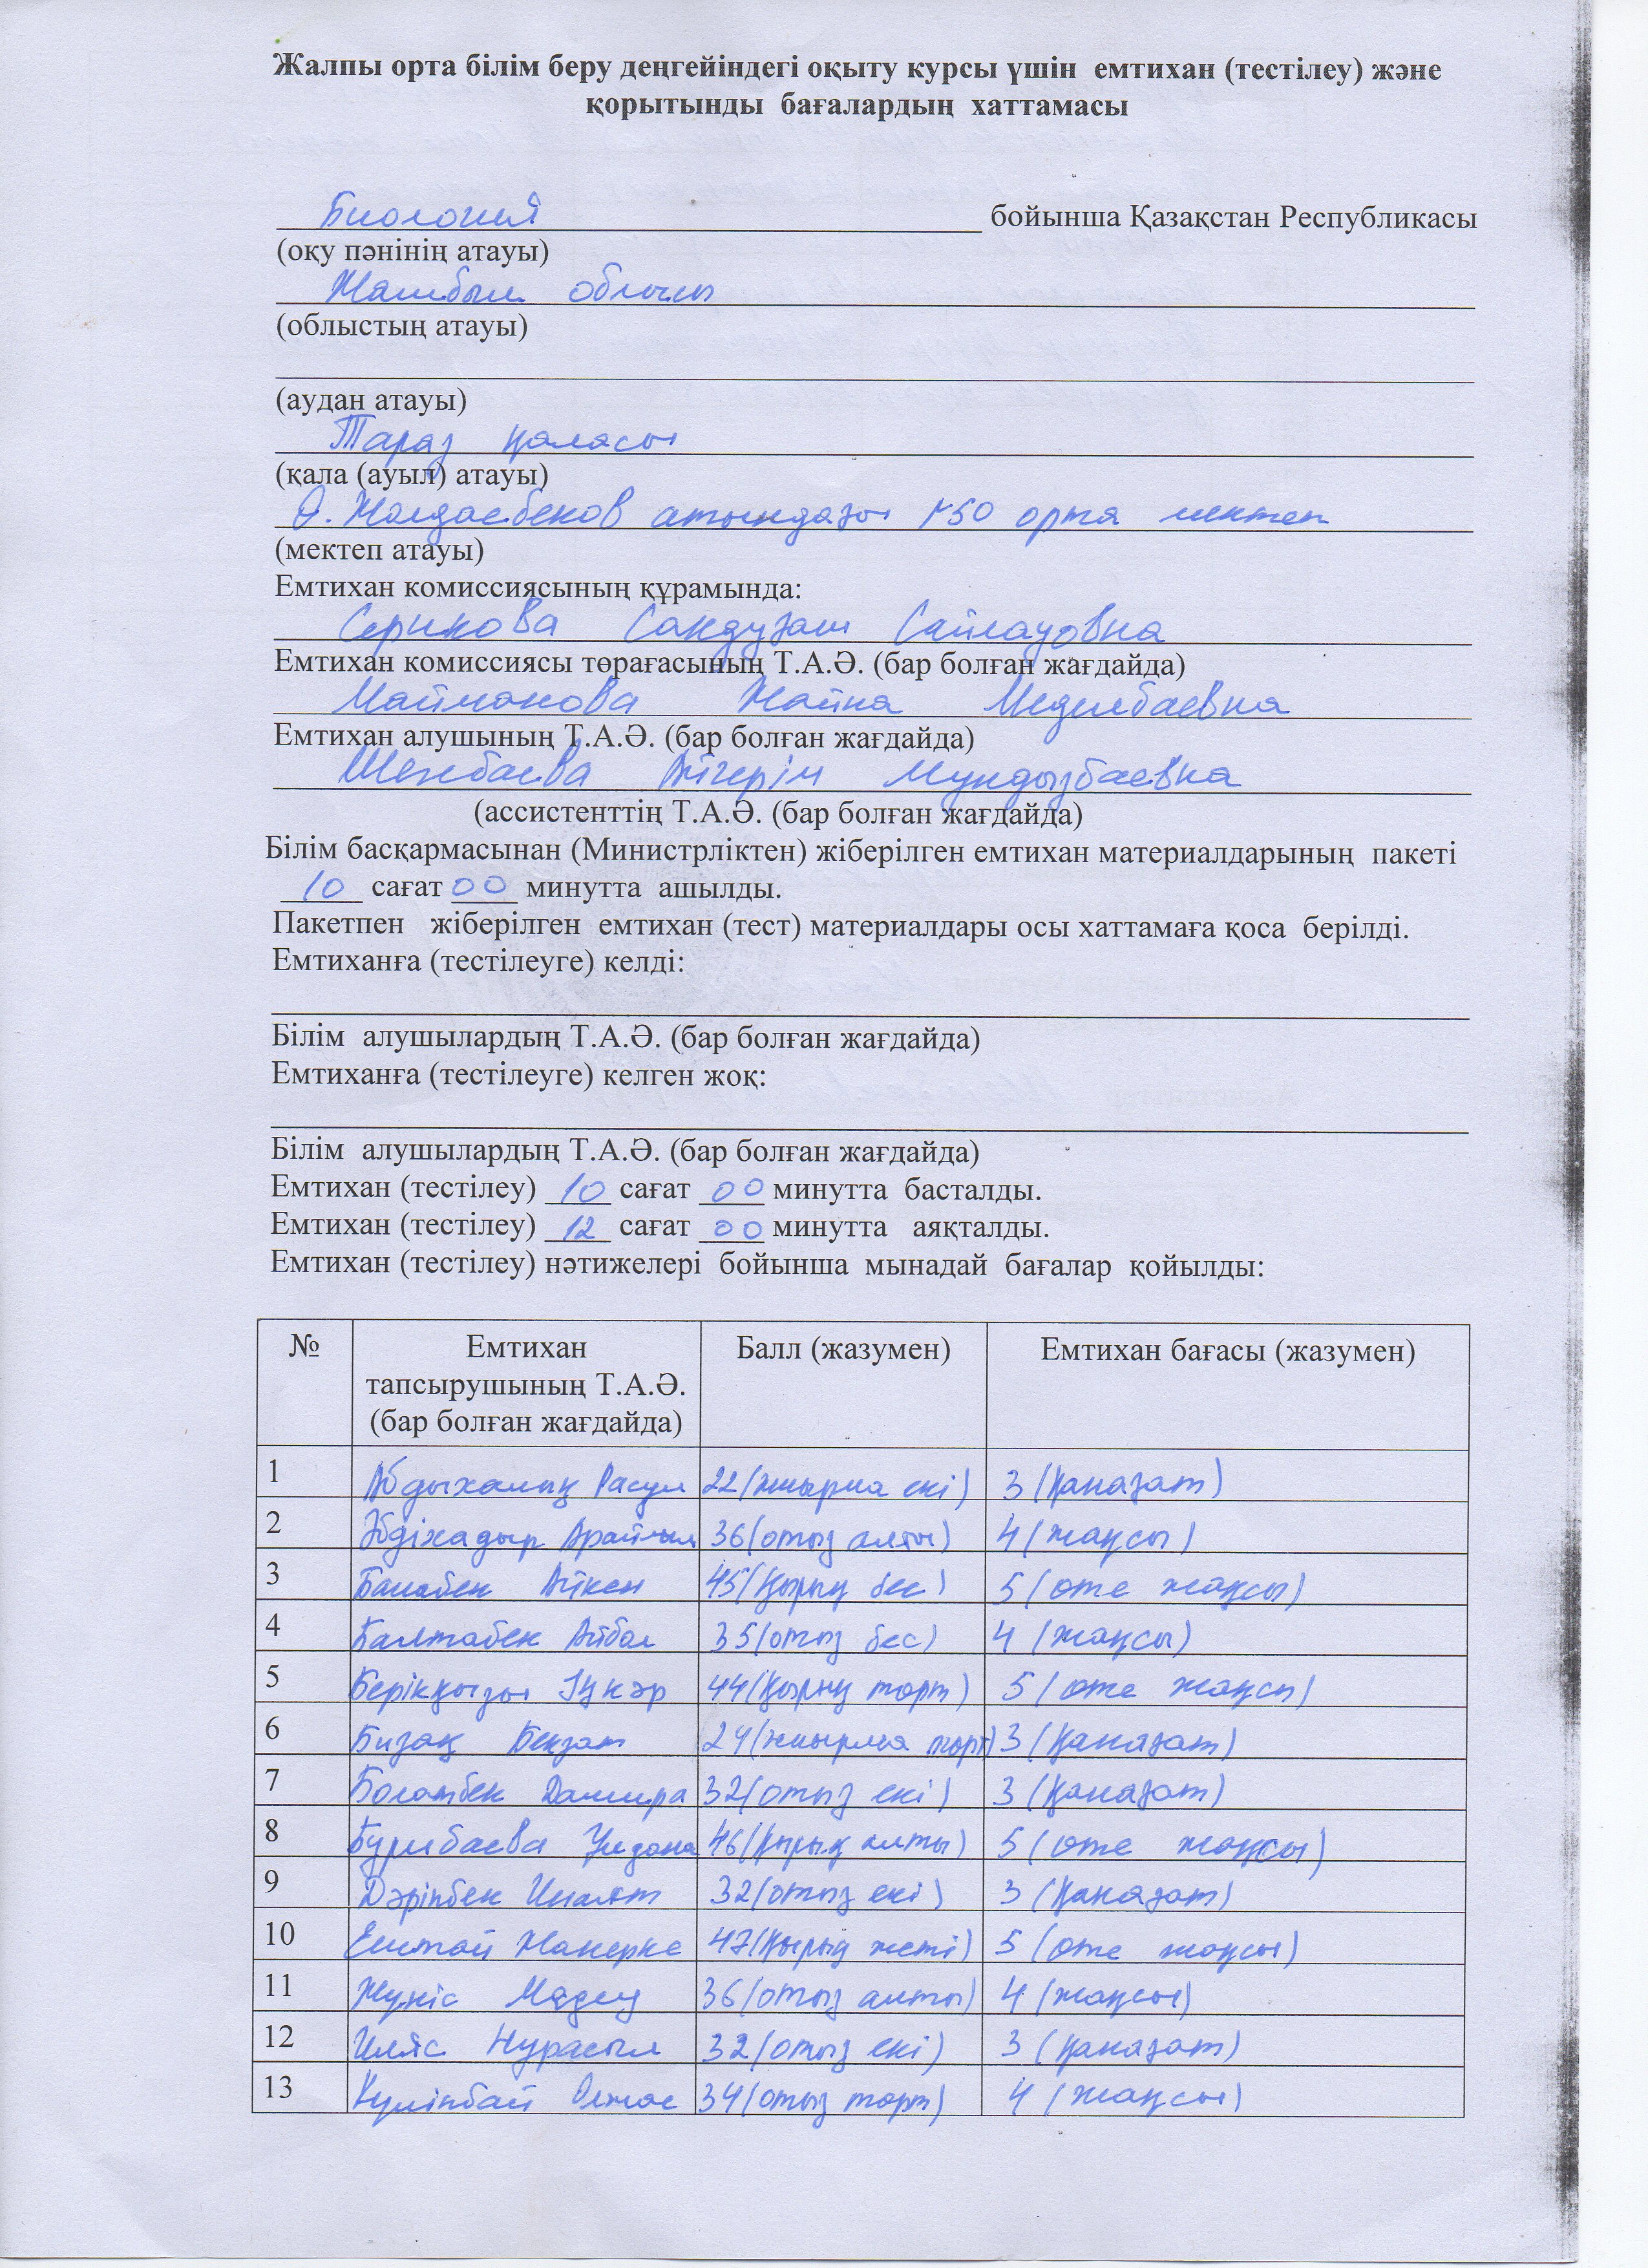 Жалпы орта білім беру деңгейіндегі оқыту курсы үшін емтихан (тестілеу) және
қорытынды бағалардың хаттамасы
Биология бойынша Қазақстан Республикасы
(оқу пәнінің атауы)
Жамбыл облысы
(облыстың атауы)
(аудан атауы)
Тараз қаласы
(қала (ауыл) атауы)
Ө. Жолдасбеков атындағы №50 орта мектеп
(мектеп атауы)
Емтихан комиссиясының құрамында:
Серикова Сандуғаш Сайлауовна
Емтихан комиссиясы төрағасының Т.А.Ә. (бар болған жағдайда)
Майманова Жайна Меделбаевна
Емтихан алушының Т.А.Ә. (бар болған жағдайда)
Шенбаева Айгерім Мундызбаевна
(ассистенттің Т.А.Ә. (бар болған жағдайда)
Білім басқармасынан (Министрліктен) жіберілген емтихан материалдарының пакеті
10 сағат 00 минутта ашылды.
Пакетпен жіберілген емтихан (тест) материалдары осы хаттамаға қоса берілді.
Емтиханға (тестілеуге) келді:
Білім алушылардың Т.А.Ә. (бар болған жағдайда)
Емтиханға (тестілеуге) келген жоқ:
Білім алушылардың Т.А.Ә. (бар болған жағдайда)
Емтихан (тестілеу) 10 сағат 00 минутта басталды.
Емтихан (тестілеу) 12 сағат 00 минутта аяқталды.
Емтихан (тестілеу) нәтижелері бойынша мынадай бағалар қойылды:
№ Емтихан тапсырушының Т.А.Ә. (бар болған жағдайда) Балл (жазумен) Емтихан бағасы (жазумен)
1 Абдыхалық Расул 22 (жиырма екі) 3 (қанағат)
2 Әбдіхадыр Арайлым 36 (отыз алты) 4 (жақсы)
3 Банабек Айкен 45 (қырық бес) 5 (өте жақсы)
4 Балтабек Айбол 35 (отыз бес) 4 (жақсы)
5 Берікқызы Іңкәр 44 (қырық төрт) 5 (өте жақсы)
6 Бизақ Бекзат 24 (жиырма төрт) 3 (қанағат)
7 Болатбек Дамира 32 (отыз екі) 3 (қанағат)
8 Бурибаева Улдана 46 (қырық алты) 5 (өте жақсы)
9 Дәріпбек Инаят 32 (отыз екі) 3 (қанағат)
10 Ештай Жанерке 47 (қырық жеті) 5 (өте жақсы)
11 Жүніс Мәдеу 36 (отыз алты) 4 (жақсы)
12 Ілияс Нұрасыл 32 (отыз екі) 3 (қанағат)
13 Күліпбай Олжас 34 (отыз төрт) 4 (жақсы)